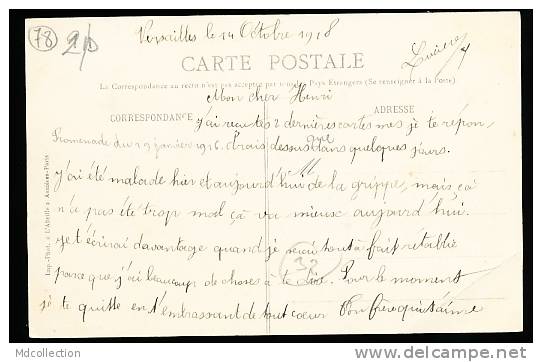 78
Versailles le 14 Octobre 1918
Lucien
CARTE POSTALE
La Correspondance au recto n'est pas acceptée par tous les Pays Etrangers (Se renseigner à la Poste)
Mon cher Henri
CORRESPONDANCE
ADRESSE
j'ai reçu tes 2 dernières cartes mes je te repon-
Promenade du 29 janvier 1916. drais dessus que dans quelques jours.
j'ai été malade hier et aujourd'hui de la grippe, mais ça
n'a pas été trop mal ça va mieux aujourd'hui.
je t'écrirai davantage quand je serai tout à fait rétablie
parce que j'ai beaucoup de choses à te dire. Pour le moment
je te quitte en t'embrassant de tout coeur Ton frère qui t'aime
32
Imp.-Phot. A L'Abeille à Asnières-Paris
Mdcollection
http://www.delcampe.net